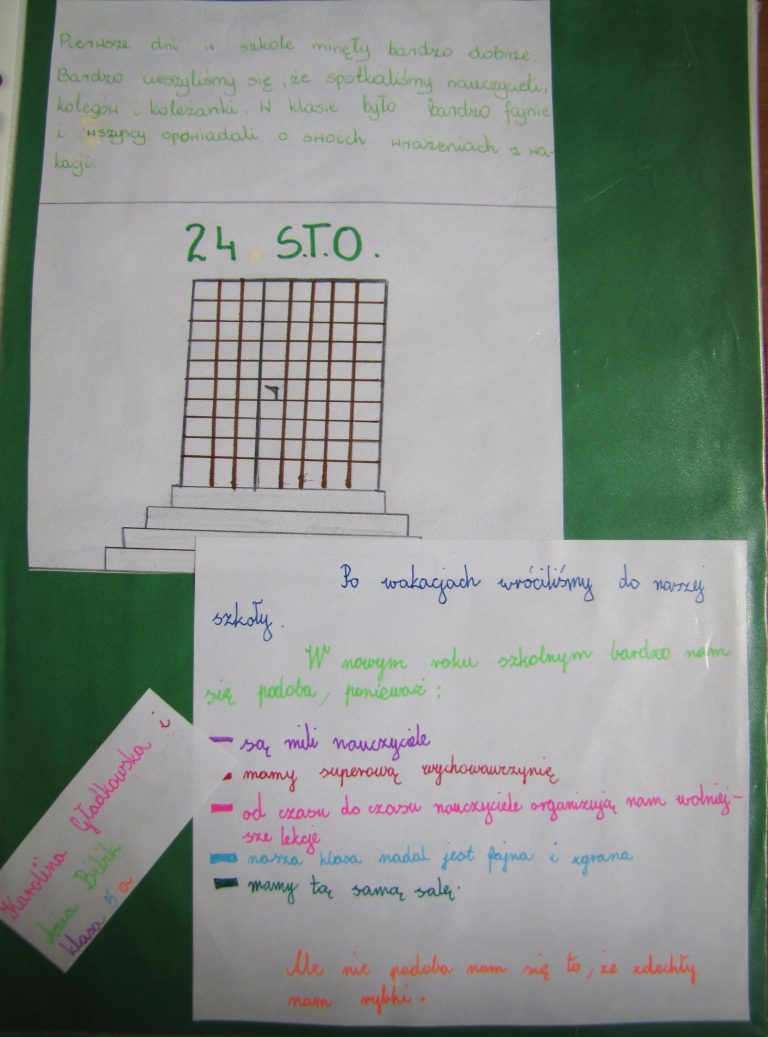 Pierwsze dni w szkole minęły bardzo dobrze.
Bardzo ucszyliśmy się, że spotkaliśmy nauczycieli,
kolegów i koleżanki. W klasie było bardzo fajnie
i wszyscy opowiadali o swoich wrażeniach z wa-
kacji.
24 S.T.O.
Po wakacjach wróciliśmy do naszej
szkoły.
W nowym roku szkolnym bardzo nam
się podoba, ponieważ:
- są mili nauczyciele
- mamy superową wychowawczynię
- od czasu do czasu nauczyciele organizują nam wolniej-
sze lekcje
- nasza klasa nadal jest fajna i zgrana
- mamy tą samą salę.
Ale nie podoba nam się to, że zdechły
nam rybki.
Karolina Gładkowska i
klasa 5 a